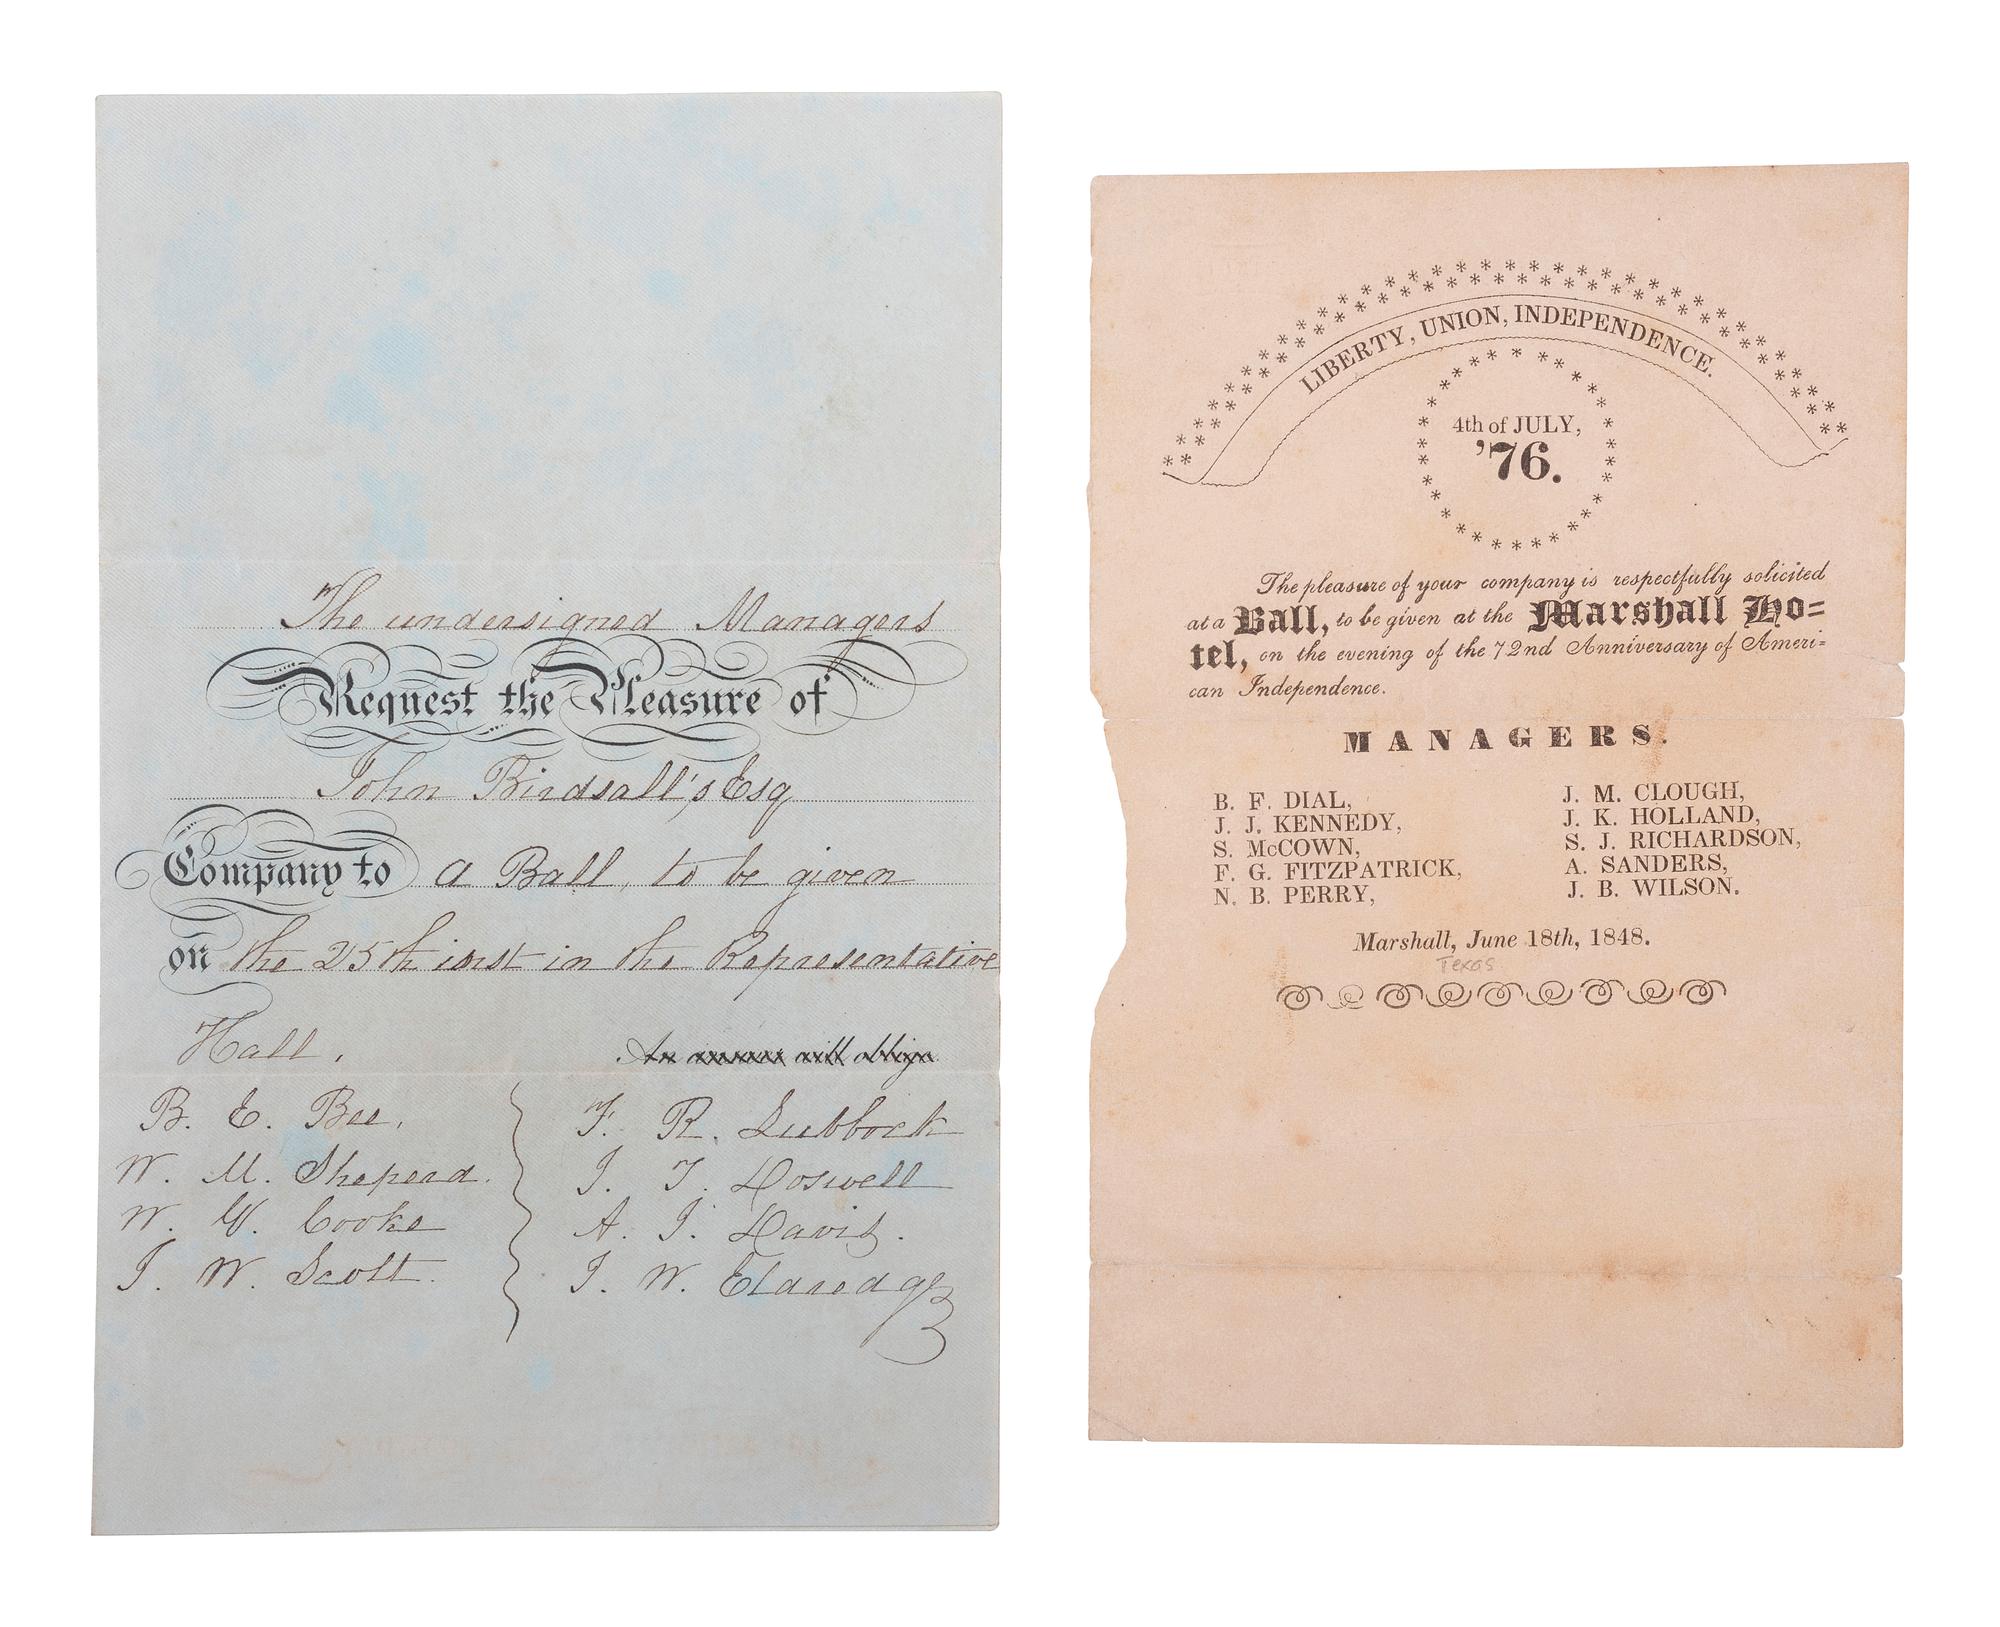 The undersigned Managers
Request the Pleasure of
John Birdsall's Esq
Company to a Ball, to be given
on the 25th inst in the Representative
Hall.
An answer will oblige
B. E. Bee.
W. M. Sheperd.
W. G. Cooke
J. W. Scott.
F. R. Lubbock
J. T. Doswell
A. J. Davis.
J. W. Eldredge
LIBERTY, UNION, INDEPENDENCE.
4th of JULY,
'76.
The pleasure of your company is respectfully solicited
at a Ball, to be given at the Marshall Ho=
tel, on the evening of the 72nd Anniversary of Ameri=
can Independence.
MANAGERS.
B. F. DIAL,
J. J. KENNEDY,
S. McCOWN,
F. G. FITZPATRICK,
N. B. PERRY,
J. M. CLOUGH,
J. K. HOLLAND,
S. J. RICHARDSON,
A. SANDERS,
J. B. WILSON.
Marshall, June 18th, 1848.
Texas